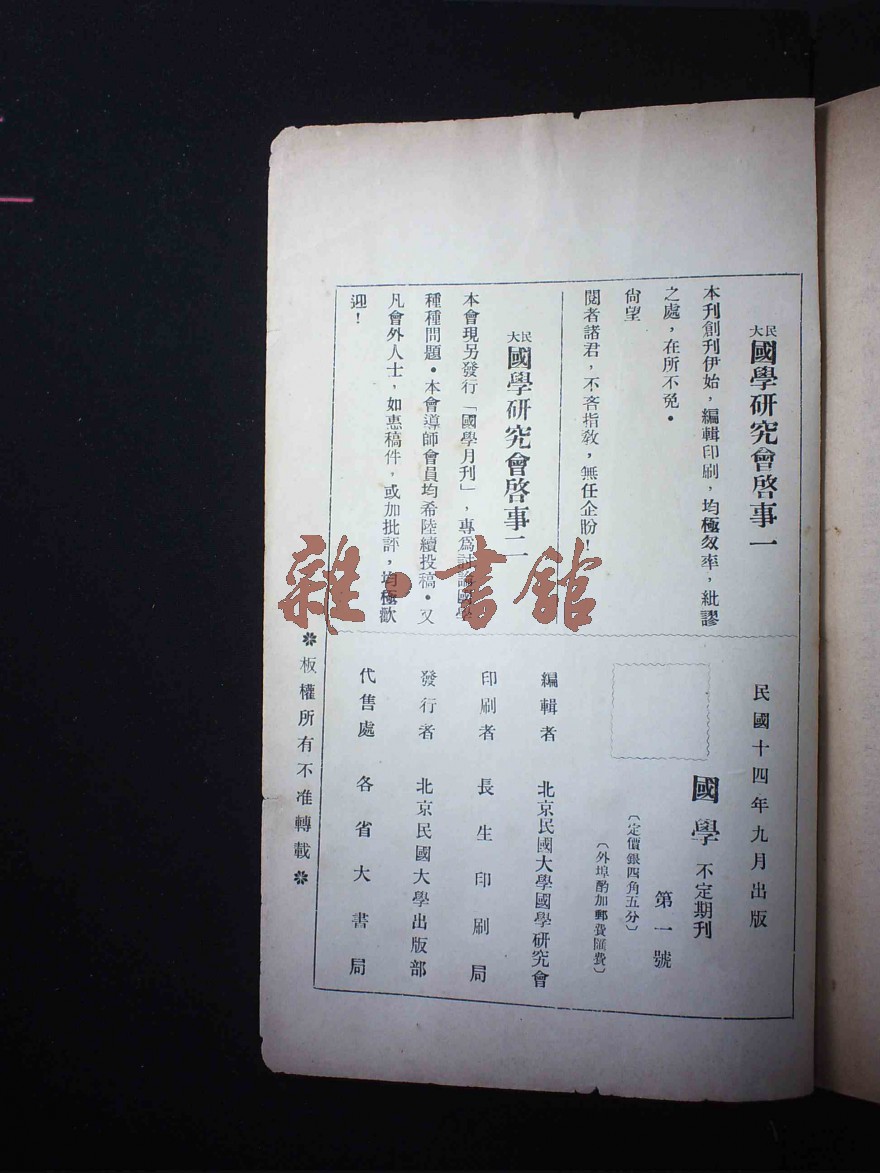 民大國學研究會啓事一
本刊創刊伊始，編輯印刷，均極匆率，紕謬
之處，在所不免．
尙望
閱者諸君，不吝指敎，無任企盼！
民大國學研究會啓事二
本會現另發行「國學月刊」，專爲討論國學
種種問題．本會導師會員均希陸續投稿．又
凡會外人士，如惠稿件，或加批評，均極歡
迎！
民國十四年九月出版
國學 不定期刊
第一號
〔定價銀四角五分〕
〔外埠酌加郵費匯費〕
編輯者 北京民國大學國學研究會
印刷者 長生印刷局
發行者 北京民國大學出版部
代售處 各省大書局
※板權所有不准轉載※
雜·書館